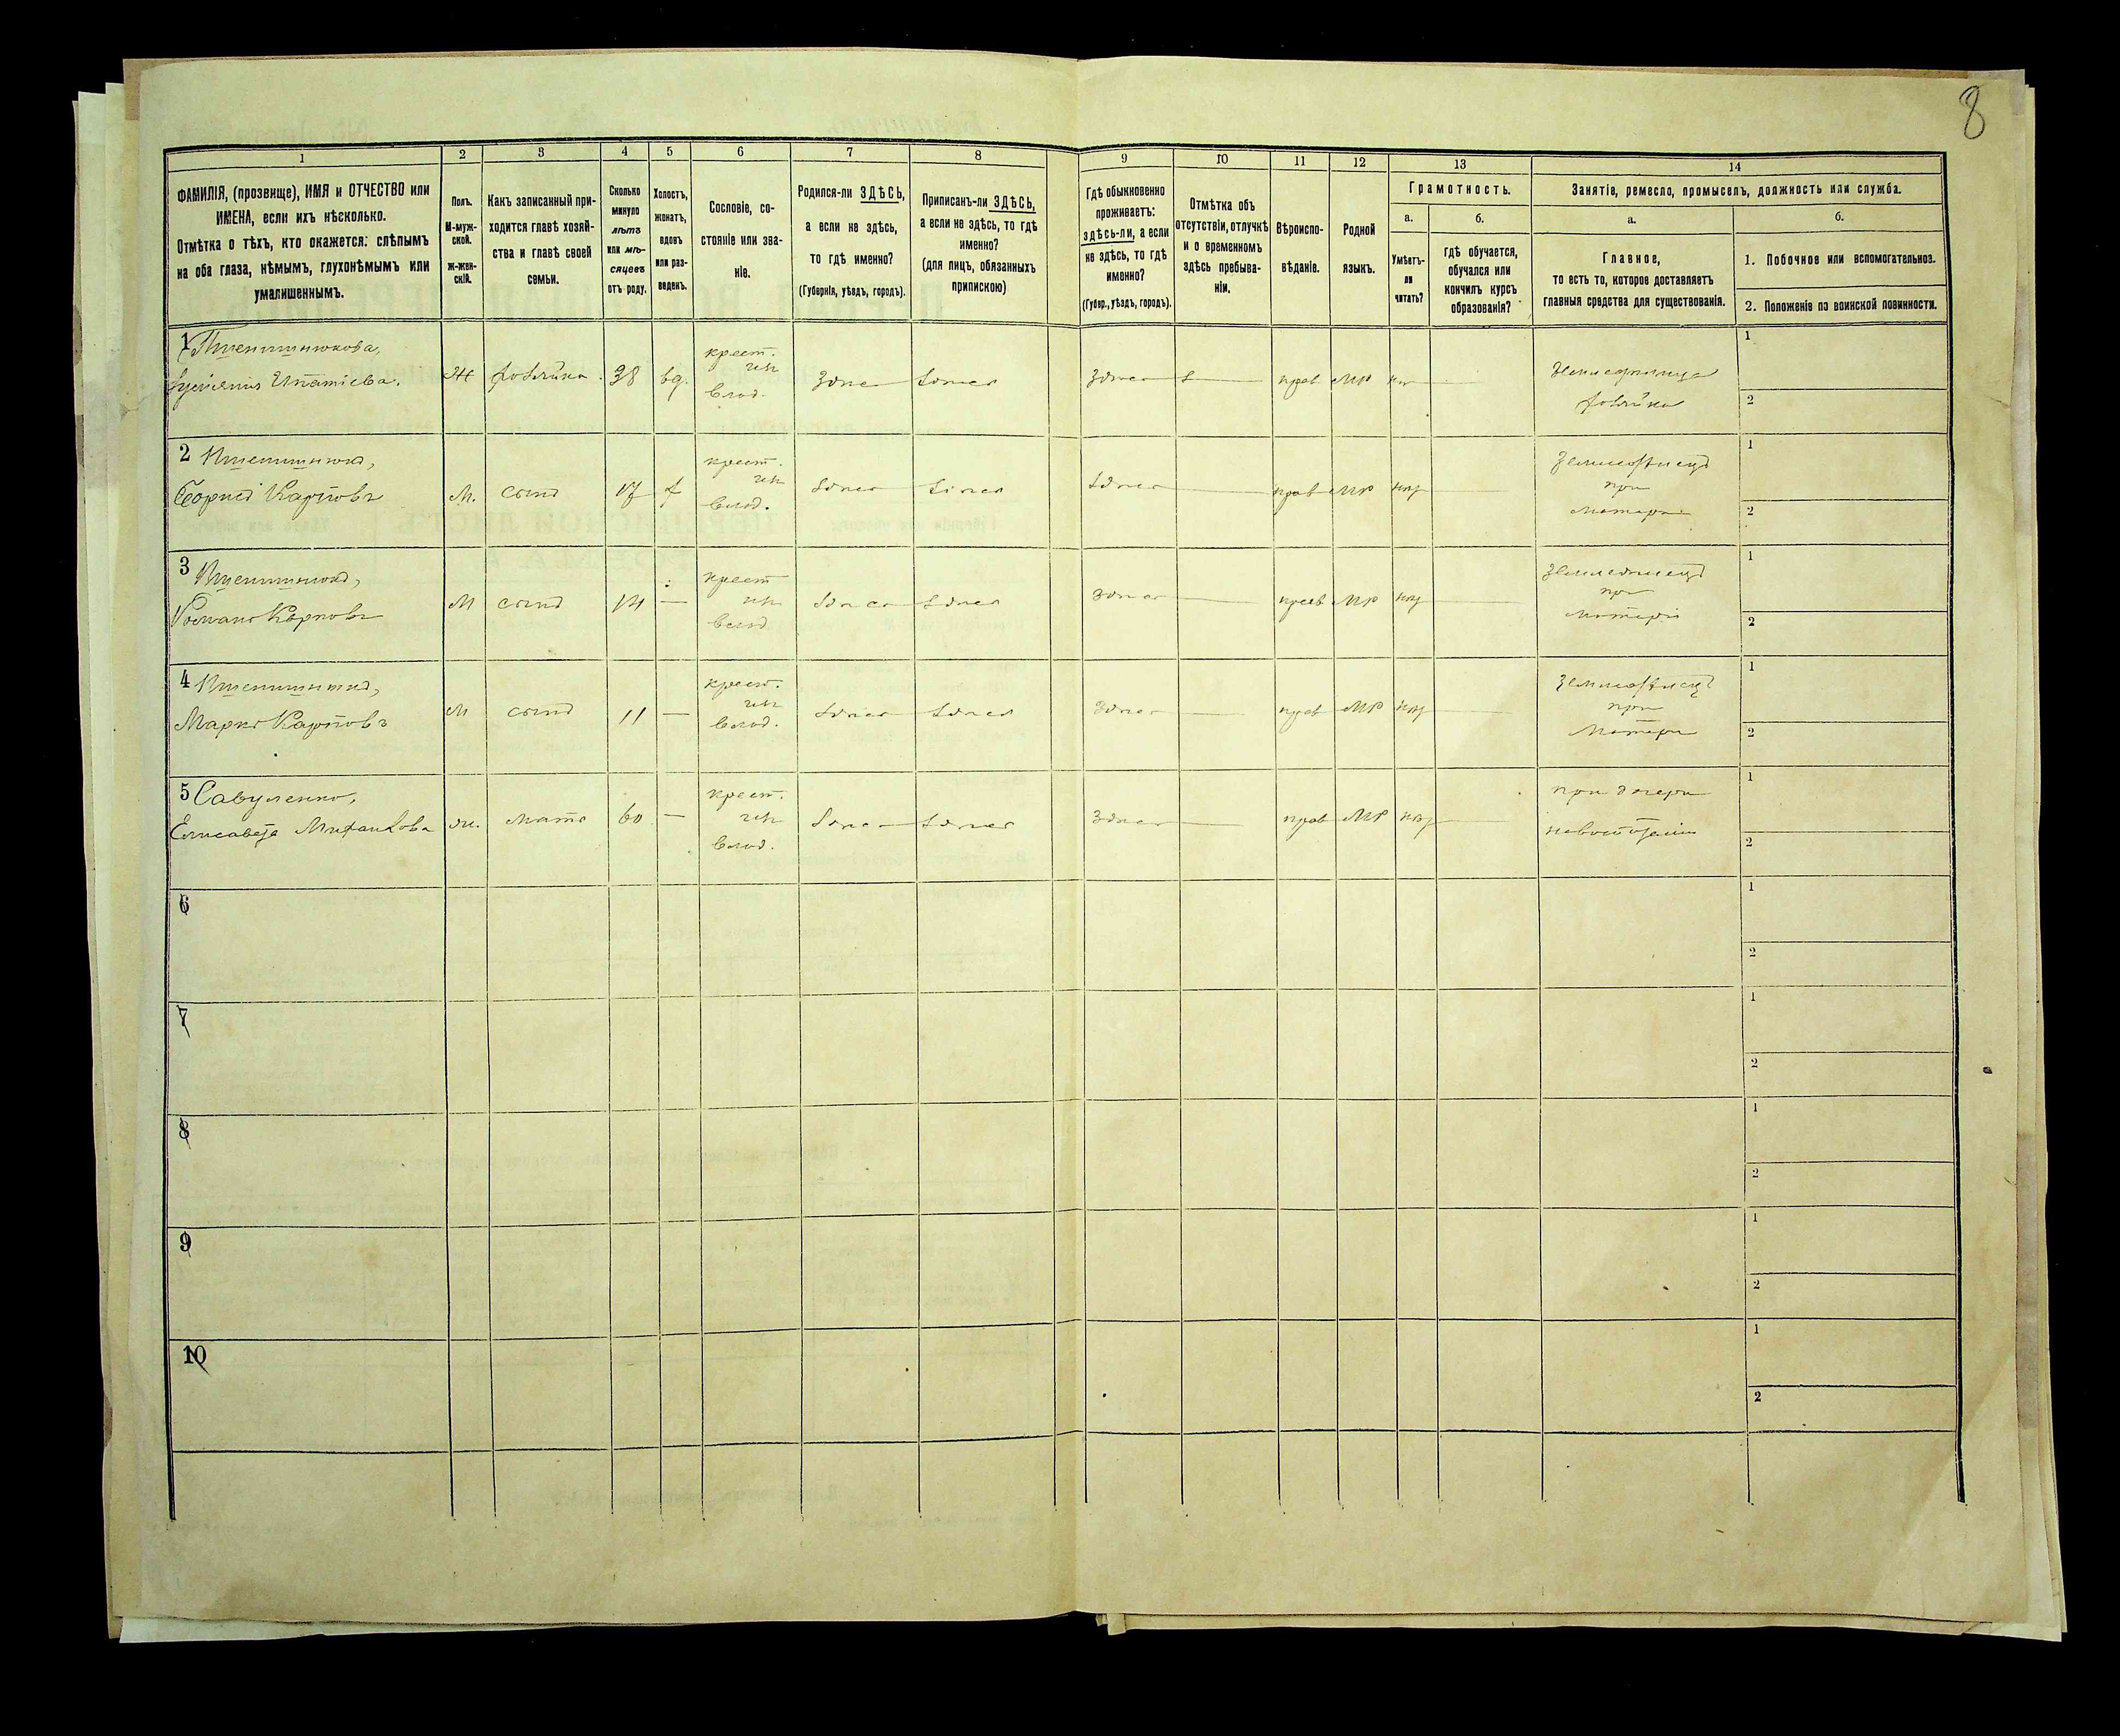 8
1
2
3
4
5
6
7
8
9
10
11
12
13
14
ФАМИЛІЯ, (прозвище), ИМЯ и ОТЧЕСТВО или
ИМЕНА, если ихъ нѣсколько.
Отмѣтка о тѣхъ, кто окажется: слѣпымъ
на оба глаза, нѣмымъ, глухонѣмымъ или
умалишеннымъ.
Полъ.
М-муж-
ской.
ж-жен-
скій.
Какъ записанный при-
ходится главѣ хозяй-
ства и главѣ своей
семьи.
Сколько
минуло
лѣтъ
или мѣ-
сяцевъ
отъ роду.
Холостъ,
женатъ,
вдовъ
или раз-
веденъ.
Сословіе, со-
стояніе или зва-
ніе.
Родился-ли ЗДѢСЬ,
а если не здѣсь,
то гдѣ именно?
(Губернія, уѣздъ, городъ).
Приписанъ-ли ЗДѢСЬ,
а если не здѣсь, то гдѣ
именно?
(для лицъ, обязанныхъ
припискою)
Гдѣ обыкновенно
проживаетъ:
здѣсь-ли, а если
не здѣсь, то гдѣ
именно?
(Губер., уѣздъ, городъ).
Отмѣтка объ
отсутствіи, отлучкѣ
и о временномъ
здѣсь пребыва-
ніи.
Вѣроиспо-
вѣданіе.
Родной
языкъ.
Грамотность.
а.
б.
Умѣетъ-
ли
читать?
Гдѣ обучается,
обучался или
кончилъ курсъ
образованія?
Занятіе, ремесло, промыселъ, должность или служба.
а.
б.
Главное,
то есть то, которое доставляетъ
главныя средства для существованія.
1. Побочное или вспомогательное.
2. Положеніе по воинской повинности.
1
Ипатіева. Ж хозяйка 38 вд. крест. здѣсь здѣсь здѣсь прав МР
хозяйка
1
2
2
Карповъ М. сынъ 17 х крест. здѣсь здѣсь здѣсь прав МР
при
матери
1
2
3
Романъ Карповъ М сынъ 14 — крест здѣсь здѣсь здѣсь прав МР
при
матери
1
2
4
Марко Карповъ М сынъ 11 — крест. здѣсь здѣсь здѣсь прав МР
при
матери
1
2
5 Савуленко,
Елисавета Михайлова ж. мать 60 — крест. здѣсь здѣсь здѣсь прав МР
при дочери
1
2
6
1
2
7
1
2
8
1
2
9
1
2
10
1
2